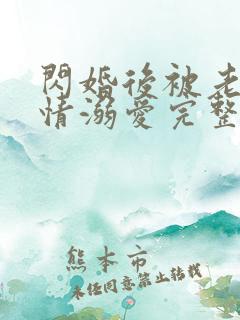 閃婚後被老
情溺愛完整
熊本市
未任同意禁止转载